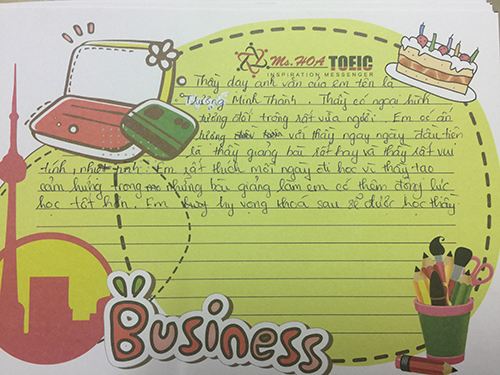 Ms. HOA TOEIC
INSPIRATION MESSENGER
Thầy dạy anh văn của em tên là
Minh Thành. Thầy có ngoại hình
tương đối trông rất vừa người. Em có ấn
tượng với thầy ngay ngày đầu tiên
là thầy giảng bài rất hay và thầy rất vui
tính, nhiệt tình. Em rất thích mỗi ngày đi học vì thầy tạo
cảm hứng trong những bài giảng làm em có thêm động lực
học tốt hơn. Em hy vọng khoá sau sẽ được học thầy
Business